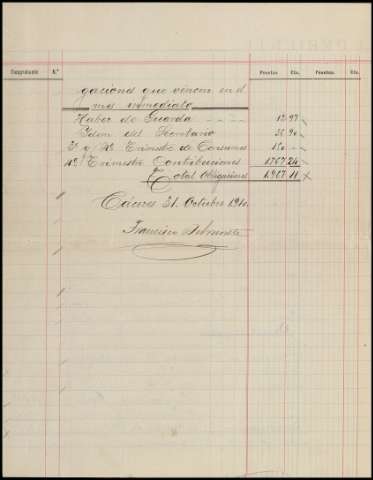 Comprobante N.º Pesetas Cts. Pesetas. Cts.
gaciones que vencen en el
mes inmediato
Haber de Guarda - - - 12 97
Idem del Secretario 36 90
3º y 4º Trimestre de Consumos 150 -
4º Trimestre Contribuciones 1767 24
Total Obligaciones 1.967 11
Cáceres 31 Octubre 1910.
Francisco